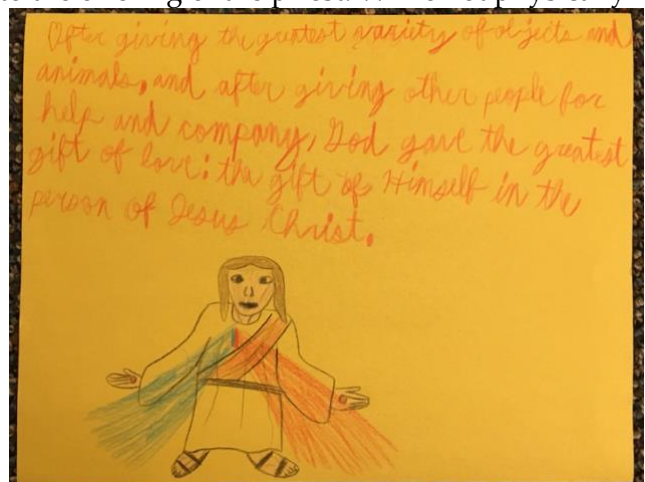 After giving the greatest variety of objects and
animals, and after giving other people for
help and company, God gave the greatest
gift of love: the gift of Himself in the
person of Jesus Christ.